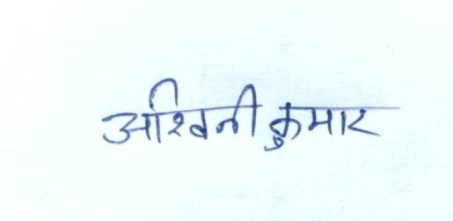 अश्विनी कुमार